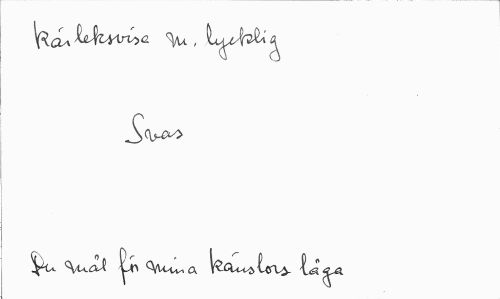 Kärleksvisa m. lycklig
Svas
Du mål för mina känslors låga